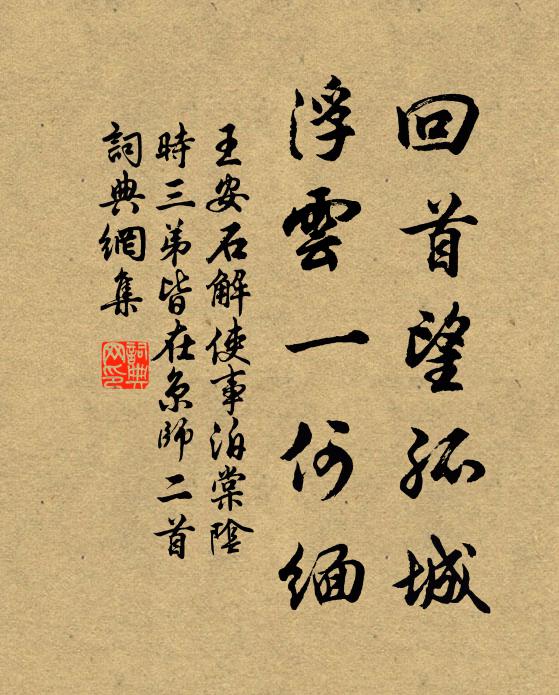 回首望孤城
浮雲一何緬
王安石解使事泊棠陰
時三弟皆在京師二首
詞典網集
詞典
网印